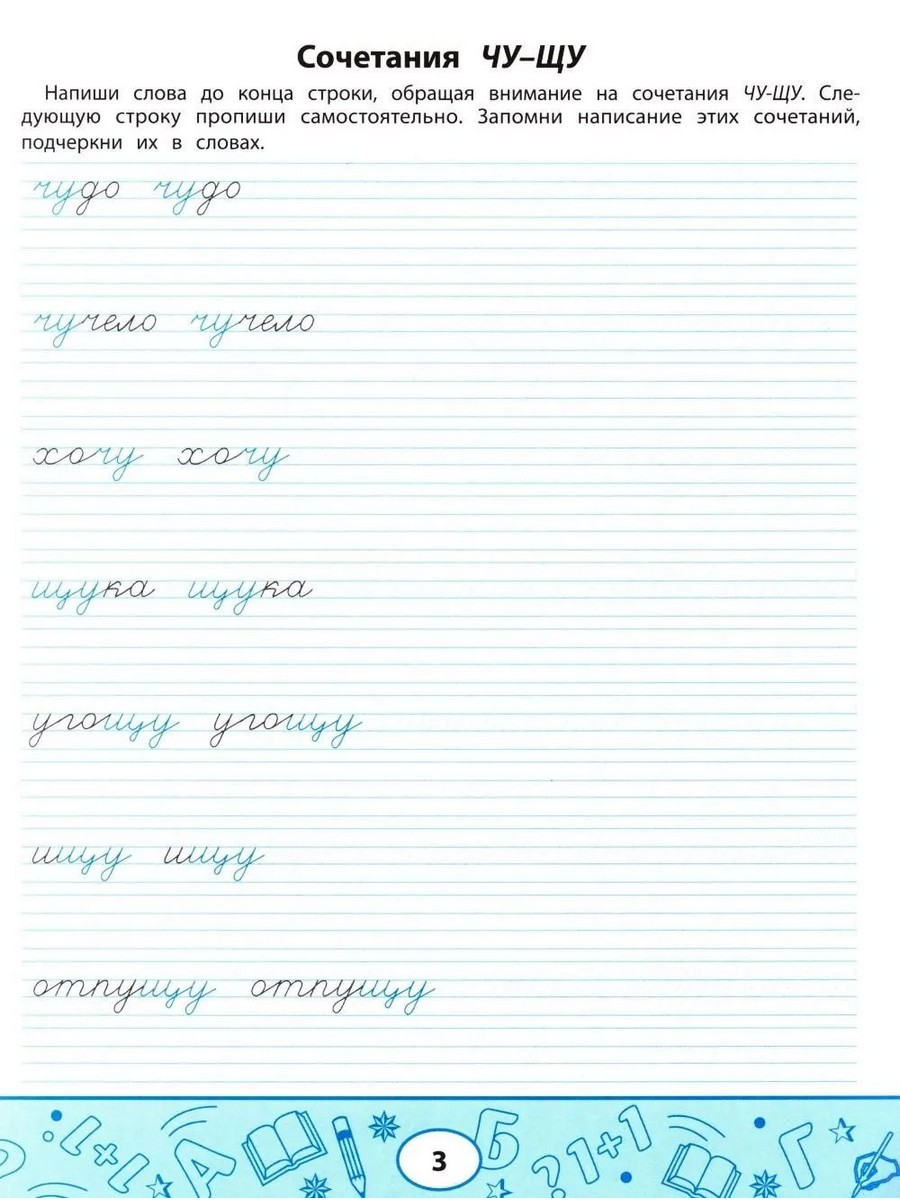 Сочетания ЧУ–ЩУ
Напиши слова до конца строки, обращая внимание на сочетания ЧУ-ЩУ. Сле-
дующую строку пропиши самостоятельно. Запомни написание этих сочетаний,
подчеркни их в словах.
чудо чудо
чучело чучело
хочу хочу
щука щука
угощу угощу
ищу ищу
отпущу отпущу
1+1 А Б ?1+1 Г
3